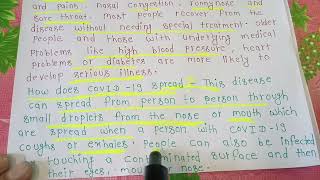 and pains, nasal congestion, runnynose and
sore throat. Most people recover from the
disease without needing special treatment. older
people and those with underlying medical
problems like high blood pressure, heart
problems or diabetes are more likely to
develop serious illness.
How does COVID-19 spread - This disease
can spread from person to person through
small droplets from the nose or mouth which
are spread when a person with COVID-19
coughs or exhales. People can also be infected
touching a contaminated surface and then
their eyes, mouth or nose.